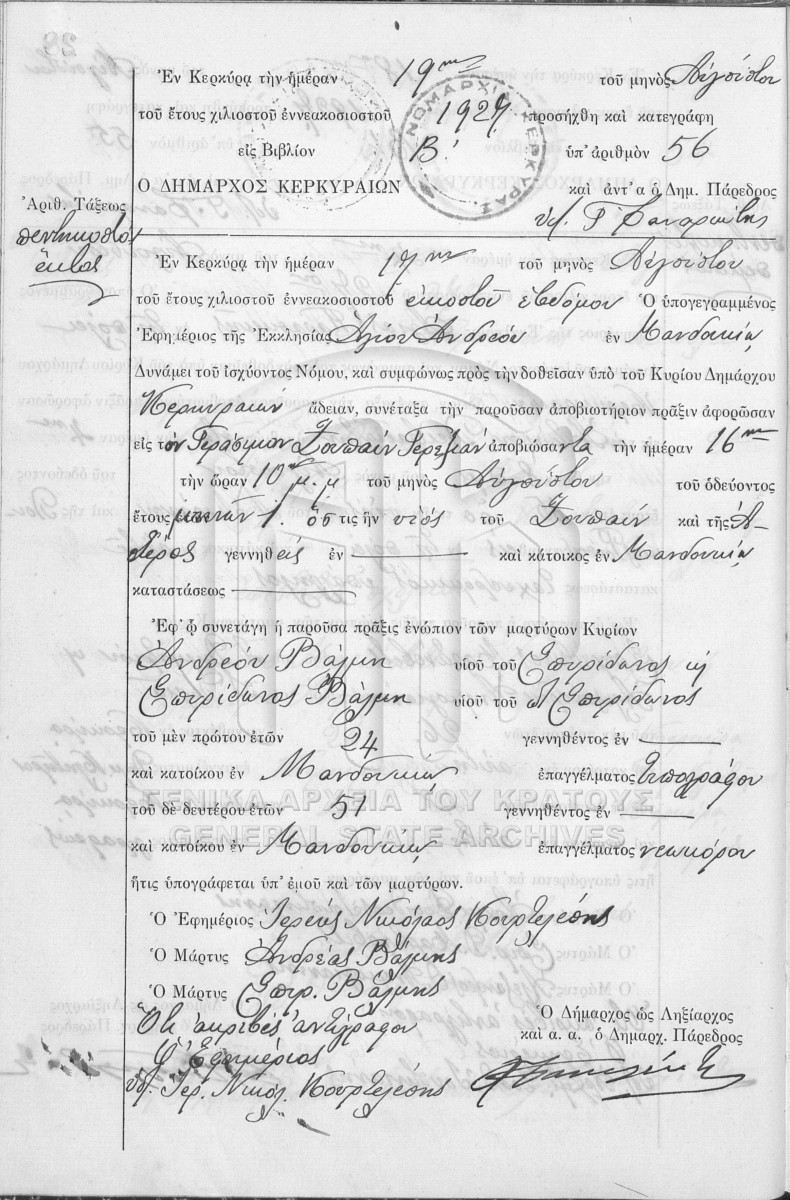 Ἐν Κερκύρᾳ τὴν ἡμέραν 19ην τοῦ μηνὸς Αὐγούστου
τοῦ ἔτους χιλιοστοῦ ἐννεακοσιοστοῦ 1927 προσήχθη καὶ κατεγράφη
εἰς Βιβλίον Β' ὑπ' ἀριθμὸν 56
Ο ΔΗΜΑΡΧΟΣ ΚΕΡΚΥΡΑΙΩΝ καὶ ἀντ' α ὁ Δημ. Πάρεδρος
Ἀριθ. Τάξεως
πεντηκοστὸν
ἕκτος
ΝΟΜΑΡΧΙ ΚΕΡΚΥΡΑΣ
Ἐν Κερκύρᾳ τὴν ἡμέραν 17ην τοῦ μηνὸς Αὐγούστου
τοῦ ἔτους χιλιοστοῦ ἐννεακοσιοστοῦ εἰκοστοῦ ἑβδόμου Ὁ ὑπογεγραμμένος
Ἐφημέριος τῆς Ἐκκλησίας Ἁγίου Ἀνδρέου ἐν Μανδουκίῳ
Δυνάμει τοῦ ἰσχύοντος Νόμου, καὶ συμφώνως πρὸς τὴν δοθεῖσαν ὑπὸ τοῦ Κυρίου Δημάρχου
Κερκυραίων ἄδειαν, συνέταξα τὴν παροῦσαν ἀποβιωτήριον πρᾶξιν ἀφορῶσαν
εἰς τὸν Γεράσιμον ἀποβιώσαντα τὴν ἡμέραν 16ην
τὴν ὥραν 10 μ.μ τοῦ μηνὸς Αὐγούστου τοῦ ὁδεύοντος
ἔτους μηνῶν 1. ὅστις ἦν υἱὸς τοῦ καὶ τῆς
γεννηθεὶς ἐν καὶ κάτοικος ἐν Μανδουκίῳ
καταστάσεως
Ἐφ' ᾧ συνετάγη ἡ παροῦσα πρᾶξις ἐνώπιον τῶν μαρτύρων Κυρίων
Ἀνδρέου Βάλμη υἱοῦ τοῦ Σπυρίδωνος κ
Σπυρίδωνος Βάλμη υἱοῦ τοῦ Σπυρίδωνος
τοῦ μὲν πρώτου ἐτῶν 24 γεννηθέντος ἐν
καὶ κατοίκου ἐν Μανδουκίῳ ἐπαγγέλματος τυπογράφου
ΓΕΝΙΚΑ ΑΡΧΕΙΑ ΤΟΥ ΚΡΑΤΟΥΣ
τοῦ δὲ δευτέρου ἐτῶν 51 γεννηθέντος ἐν
GENERAL STATE ARCHIVES
καὶ κατοίκου ἐν Μανδουκίῳ ἐπαγγέλματος νεωκόρου
ἥτις ὑπογράφεται ὑπ' ἐμοῦ καὶ τῶν μαρτύρων.
Ὁ Ἐφημέριος Ἱερεὺς Νικόλαος Κουρτελέσης
Ὁ Μάρτυς Ἀνδρέας Βάλμης
Ὁ Μάρτυς Σπυρ. Βάλμης
Ὅτι ἀκριβὲς ἀντίγραφον
Ὁ Ἐφημέριος
Ἱερ. Νικόλ. Κουρτελέσης
Ὁ Δήμαρχος ὡς Ληξίαρχος
καὶ α. α. ὁ Δημαρχ. Πάρεδρος